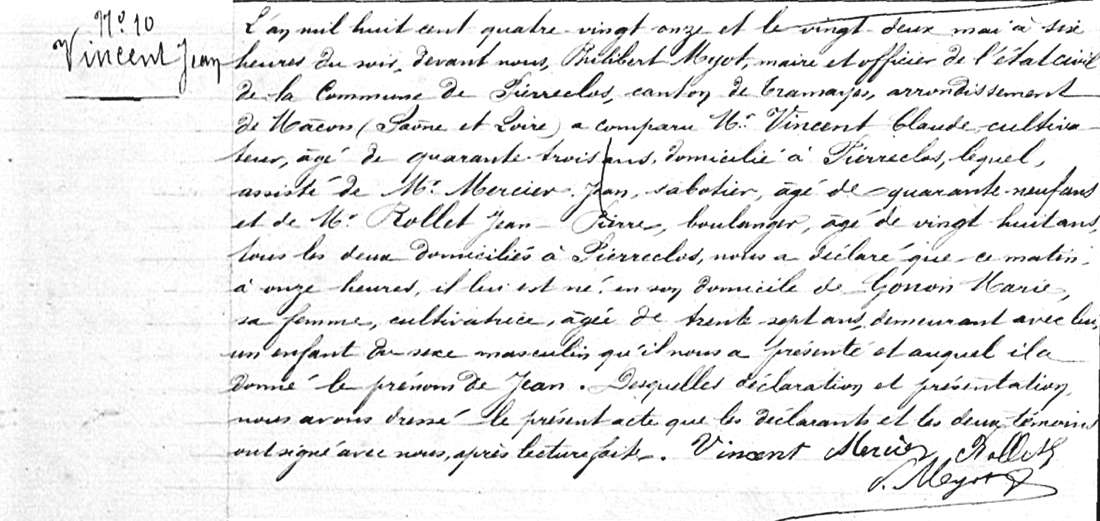 N° 10
Vincent Jean
L'an mil huit cent quatre-vingt onze et le vingt deux mai à six
heures du soir, devant nous, Philibert Myot, maire et officier de l'état civil
de la Commune de Pierreclos, canton de Tramayes, arrondissement
de Mâcon (Saône et Loire) a comparu Mr Vincent Claude, cultiva-
teur, âgé de quarante-trois ans, domicilié à Pierreclos, lequel,
assisté de Mr Mercier Jean, sabotier, âgé de quarante-neuf ans
et de Mr Rollet Jean-Pierre, boulanger, âgé de vingt huit ans,
tous les deux domiciliés à Pierreclos, nous a déclaré que ce matin,
à onze heures, il lui est né en son domicile de Gonon Marie,
sa femme, cultivatrice, âgée de trente-sept ans, demeurant avec lui,
un enfant du sexe masculin qu'il nous a présenté et auquel il a
donné le prénom de Jean. Desquelles déclaration et présentation
nous avons dressé le présent acte que les déclarants et les deux témoins
ont signé avec nous, après lecture faite. Vincent Mercier Rollet
P. Myot